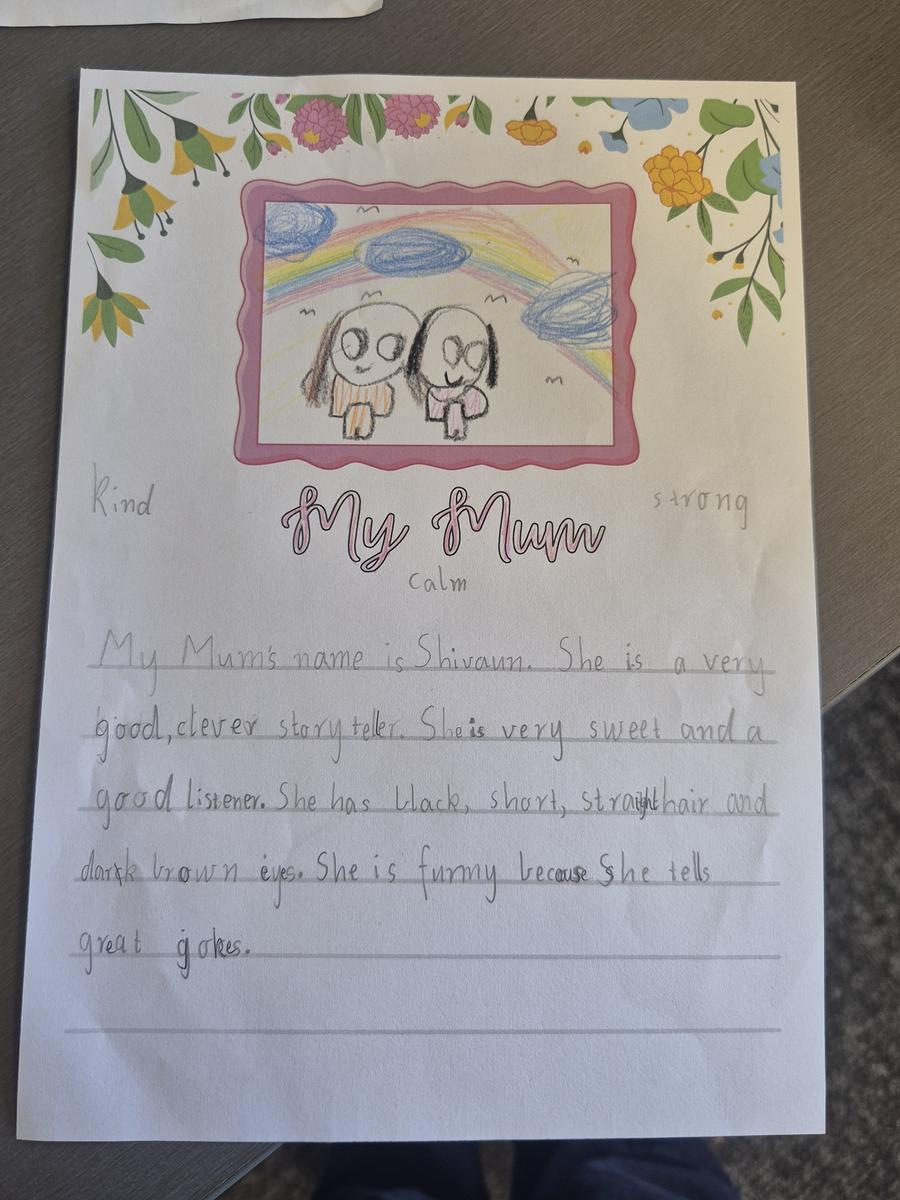 kind
strong
My Mum
calm
My Mum's name is Shivaun. She is a very
good, clever story teller. She is very sweet and a
good listener. She has black, short, straight hair and
dark brown eyes. She is funny because She tells
great jokes.